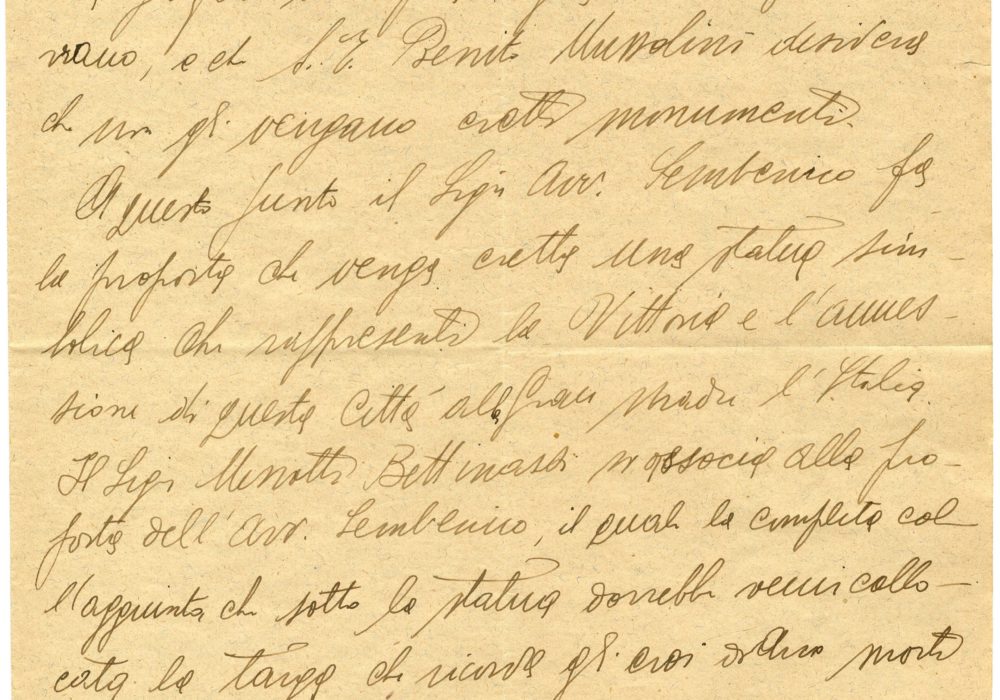 , e che S. E. Benito Mussolini desidera
che non gli vengano eretti monumenti.
A questo punto il Sigr Avv. Sembenico fa
la proposta che venga eretta una statua sim-
bolica che rappresenti la Vittoria e l'annes-
sione di questa Città alla Gran madre l'Italia.
Il Sigr Menotti si associa alla pro-
posta dell'Avv. Sembenico, il quale la completa col
l'aggiunta che sotto la statua dovrebbe venir collo-
cata la targa che ricorda gli eroi morti